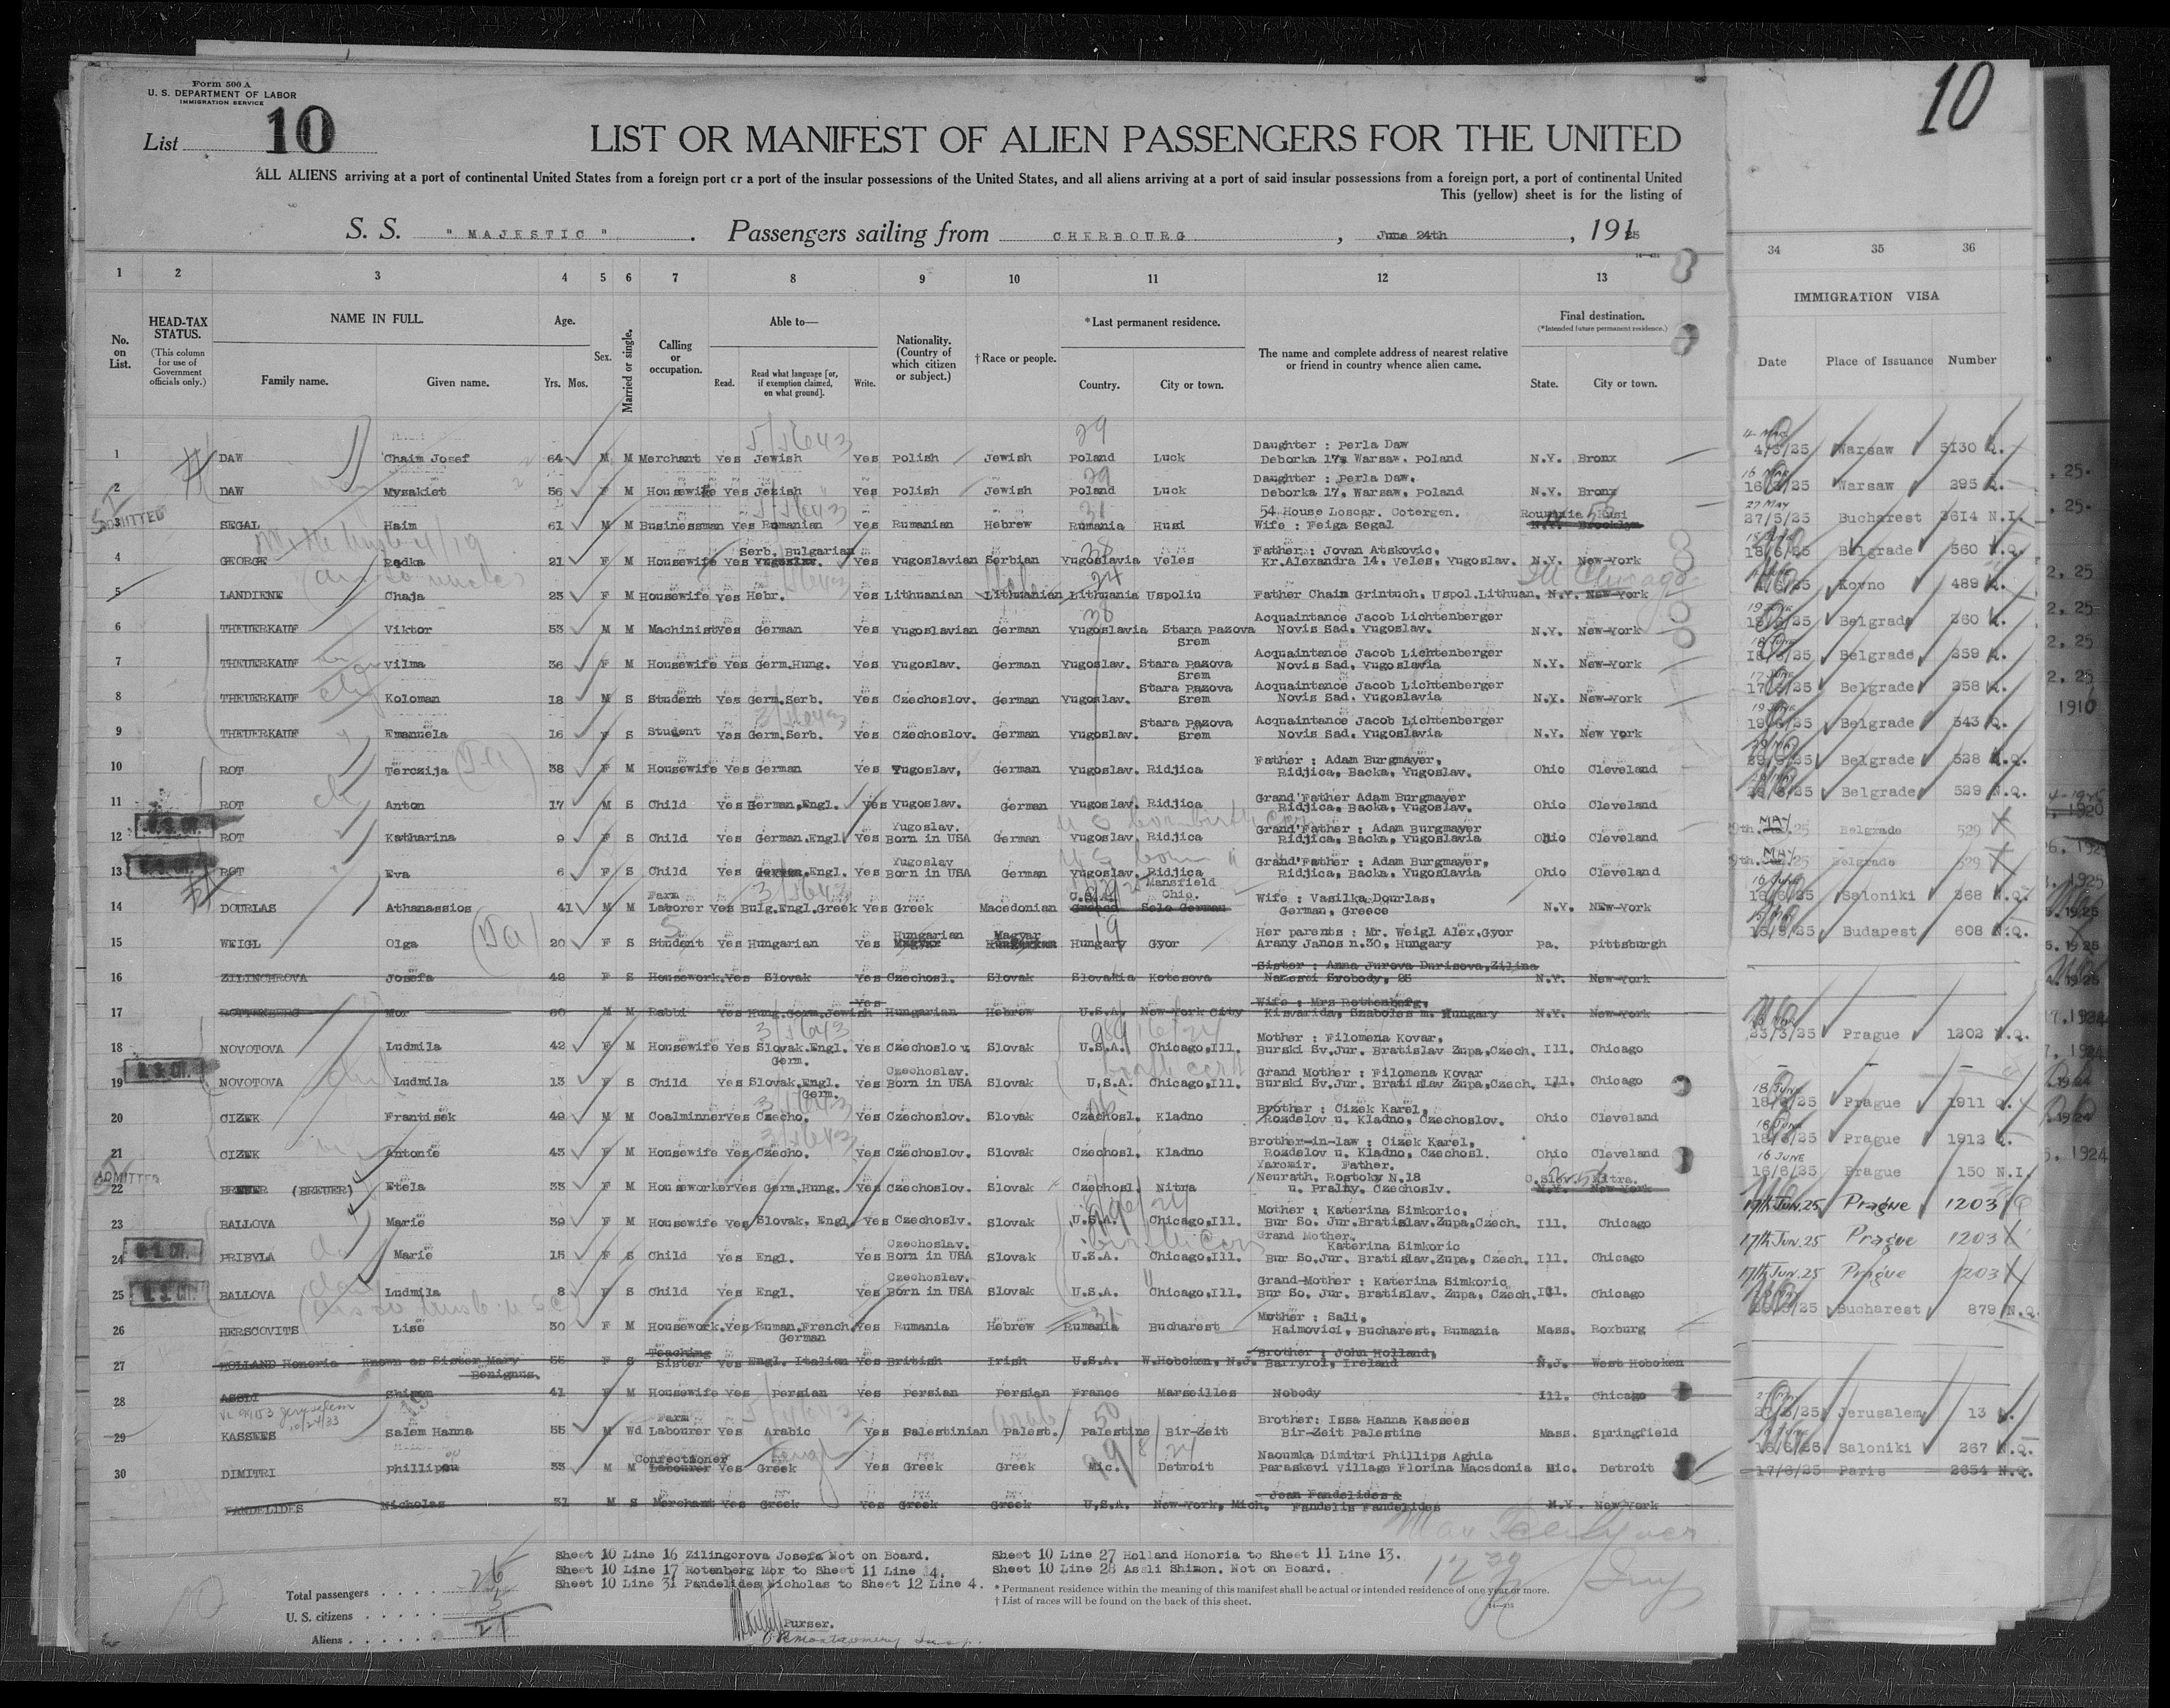 Form 500 A
U. S. DEPARTMENT OF LABOR
IMMIGRATION SERVICE
List 10
10
LIST OR MANIFEST OF ALIEN PASSENGERS FOR THE UNITED
ALL ALIENS arriving at a port of continental United States from a foreign port or a port of the insular possessions of the United States, and all aliens arriving at a port of said insular possessions from a foreign port, a port of continental United
This (yellow) sheet is for the listing of
S. S. " MAJESTIC " . Passengers sailing from CHERBOURG , June 24th , 1925
1 2 3 4 5 6 7 8 9 10 11 12 13 34 35 36
No. on List.
HEAD-TAX STATUS.
(This column for use of Government officials only.)
NAME IN FULL.
Family name. Given name.
Age.
Yrs. Mos.
Sex.
Married or single.
Calling or occupation.
Able to—
Read. Read what language [or, if exemption claimed, on what ground]. Write.
Nationality. (Country of which citizen or subject.)
† Race or people.
*Last permanent residence.
Country. City or town.
The name and complete address of nearest relative or friend in country whence alien came.
Final destination.
(*Intended future permanent residence.)
State. City or town.
IMMIGRATION VISA
Date Place of Issuance Number
1 DAW Chaim Josef 64 M M Merchant Yes Jewish Yes Polish Jewish Poland Luck Daughter : Perla Daw Deborka 17, Warsaw. Poland N.Y. Bronx 4/3/25 Warsaw 5130 Q.
2 DAW Mysakiet 56 F M Housewife Yes Jewish Yes Polish Jewish Poland Luck Daughter : Perla Daw. Deborka 17, Warsaw, Poland N.Y. Bronx Warsaw 295 Q.
ADMITTED
3 SEGAL Haim 61 M M Businessman Yes Rumanian Yes Rumanian Hebrew Rumania Husi 54 House Loscar. Cotergen. Wife : Feiga Segal Roumania Husi N.Y. Brooklyn 27/5/25 Bucharest 3614 N.I.
4 GEORGE Radka 21 F M Housewife Yes Serb. Bulgarian Yugoslav. Yes Yugoslavian Serbian Yugoslavia Veles Father : Jovan Atskovic, Kr.Alexandra 14, Veles, Yugoslav. N.Y. New-York 18/6/25 Belgrade 560 N.Q.
5 LANDIENE Chaja 23 F M Housewife Yes Hebr. Yes Lithuanian Lithuanian Lithuania Uspoliu Father Chaim Grintuch, Uspol.Lithuan. N.Y. New-York Ill Chicago Kovno 489 Q.
6 THEUERKAUF Viktor 53 M M Machinist Yes German Yes Yugoslavian German Yugoslavia Stara Pazova Srem Acquaintance Jacob Lichtenberger Novis Sad, Yugoslav. N.Y. New-York Belgrade 360 Q.
7 THEUERKAUF Vilma 36 F M Housewife Yes Germ.Hung. Yes Yugoslav. German Yugoslav. Stara Pazova Srem Acquaintance Jacob Lichtenberger Novis Sad. Yugoslavia N.Y. New-York Belgrade 359 Q.
8 THEUERKAUF Koloman 18 M S Student Yes Germ.Serb. Yes Czechoslov. German Yugoslav. Stara Pazova Srem Acquaintance Jacob Lichtenberger Novis Sad. Yugoslavia N.Y. New-York Belgrade 358 Q.
9 THEUERKAUF Emanuela 16 F S Student Yes Germ.Serb. Yes Czechoslov. German Yugoslav. Stara Pazova Srem Acquaintance Jacob Lichtenberger Novis Sad. Yugoslavia N.Y. New York 19/6/25 Belgrade 343 Q.
10 ROT Terczija 38 F M Housewife Yes German Yes Yugoslav, German Yugoslav. Ridjica Father : Adam Burgmayer, Ridjica, Backa, Yugoslav. Ohio Cleveland Belgrade 528 N.Q.
11 ROT Anton 17 M S Child Yes German,Engl. Yes Yugoslav. German Yugoslav. Ridjica Grand'Father Adam Burgmayer Ridjica, Backa, Yugoslav. Ohio Cleveland Belgrade 529 N.Q.
U. S. CIT.
12 ROT Katharina 9 F S Child Yes German,Engl Yes Yugoslav. Born in USA German Yugoslav. Ridjica Grand'Father : Adam Burgmayer Ridjica, Backa, Yugoslavia Ohio Cleveland MAY Belgrade 529
U. S. CIT.
13 ROT Eva 6 F S Child Yes German,Engl. Yes Yugoslav Born in USA German Yugoslav. Ridjica Grand'Father : Adam Burgmayer, Ridjica, Backa. Yugoslavia Ohio Cleveland MAY Belgrade 529
14 DOURLAS Athanassios 41 M M Farm Laborer Yes Bulg.Engl.Greek Yes Greek Macedonian Greece Selo German Mansfield Ohio. Wife : Vasilka Dourlas, German, Greece N.Y. New-York Saloniki 268 N.Q.
15 WEIGL Olga 20 F S Student Yes Hungarian Yes Hungarian Magyar Hungary Gyor Her parents : Mr. Weigl Alex.Gyor Arany Janos n.30, Hungary Pa. Pittsburgh Budapest 608 N.Q.
16 ZILINCHROVA Josefa 42 F S Housework. Yes Slovak Yes Czechosl. Slovak Slovakia Kotesova Sister : Anna Jurova Durisova,Zilina Namesci Svobody, 25 N.Y. New-York
17 ROTTENBERG Mor 60 M M Rabbi Yes Hung.Germ.Jewish Yes Hungarian Hebrew U.S.A. New-York City Wife : Mrs Rottenberg, Kisvarida, Szaboles m. Hungary N.Y. New-York
18 NOVOTOVA Ludmila 42 F M Housewife Yes Slovak.Engl. Germ. Yes Czechoslov. Slovak U.S.A. Chicago,Ill. Mother : Filomena Kovar, Burski Sv.Jur. Bratislav Zupa,Czech. Ill. Chicago 23/3/25 Prague 1202 N.Q.
U. S. CIT.
19 NOVOTOVA Ludmila 13 F S Child Yes Slovak.Engl. Germ. Yes Czechoslav. Born in USA Slovak U.S.A. Chicago,Ill. Grand Mother : Filomena Kovar Burski Sv.Jur. Bratislav Zupa,Czech. Ill. Chicago
20 CIZEK Frantisek 49 M M Coalminner Yes Czecho. Yes Czechoslov. Slovak Czechosl. Kladno Brother : Cizek Karel, Rozdelov u. Kladno, Czechoslov. Ohio Cleveland 18 JUNE 18/6/25 Prague 1911 Q.
21 CIZEK Antonie 43 F M Housewife Yes Czecho. Yes Czechoslov. Slovak Czechosl. Kladno Brother-in-law : Cizek Karel, Rozdelov u. Kladno, Czechosl. Ohio Cleveland 18/6/25 Prague 1912 Q.
ADMITTED
22 BREUER (BREUER) Etela 33 F M Houseworker Yes Germ.Hung. Yes Czechoslov. Slovak Czechosl. Nitra Yaromir. Father. Neurath. Rostoky N.18 u. Pralny. Czechoslv. C.slov. Nitra. N.Y. New-York 16 JUNE 16/6/25 Prague 150 N.I.
23 BALLOVA Marie 39 F M Housewife Yes Slovak. Engl. Yes Czechoslv. Slovak U.S.A. Chicago,Ill. Mother : Katerina Simkoric, Bur So. Jur.Bratislav.Zupa,Czech. Ill. Chicago 17th Jun. 25 Prague 1203
U. S. CIT.
24 PRIBYLA Marie 15 F S Child Yes Engl. Yes Czechoslav. Born in USA Slovak U.S.A. Chicago,Ill. Grand Mother. Katerina Simkoric Bur So.Jur. Bratislav.Zupa, Czech. Ill. Chicago 17th Jun. 25 Prague 1203
U. S. CIT.
25 BALLOVA Ludmila 8 F S Child Yes Engl. Yes Czechoslav. Born in USA Slovak U.S.A. Chicago,Ill. Grand-Mother : Katerina Simkoric Bur So. Jur. Bratislav. Zupa, Czech. Ill. Chicago 17th Jun. 25 Prague 1203
26 HERSCOVITS Lise 30 F M Housework. Yes Ruman.French. German Yes Rumania Hebrew Rumania Bucharest Mother : Sali, Haimovici, Bucharest, Rumania Mass. Roxburg Bucharest 879 N.Q.
27 HOLLAND Honoria - Known as Sister Mary Benignus. 55 F S Teaching Sister Yes Engl. Italian Yes British Irish U.S.A. W.Hoboken, N.J. Brother : John Holland, Barryrol, Ireland N.J. West Hoboken
28 ASSLI Shimon 41 F M Housewife Yes Persian Yes Persian Persian France Marseilles Nobody Ill. Chicago
29 KASSEES Salem Hanna 55 M Wd Farm Labourer Yes Arabic Yes Palestinian Palest. Palestine Bir-Zeit Brother: Issa Hanna Kassees Bir-Zeit Palestine Mass. Springfield Jerusalem 13
30 DIMITRI Phillipou 33 M M Confectioner Labourer Yes Greek Yes Greek Greek Mic. Detroit Naoumka Dimitri Phillips Aghia Paraskevi Village Florina Macedonia Mic. Detroit Saloniki 267 N.Q.
PANDELIDES Nicholas 31 M S Merchant Yes Greek Yes Greek Greek U.S.A. New-York, Mich. Jean Pandelides & Pandelis Pandelides N.Y. New York 17/6/25 Paris 2654 N.Q.
Sheet 10 Line 16 Zilingorova Josefa Not on Board.
Sheet 10 Line 17 Rotenberg Mor to Sheet 11 Line 14.
Sheet 10 Line 31 Pandelides Nicholas to Sheet 12 Line 4.
Sheet 10 Line 27 Holland Honoria to Sheet 11 Line 13.
Sheet 10 Line 28 Assli Shimon. Not on Board.
* Permanent residence within the meaning of this manifest shall be actual or intended residence of one year or more.
† List of races will be found on the back of this sheet.
Total passengers 26
U. S. citizens 5
Aliens 21
Purser.